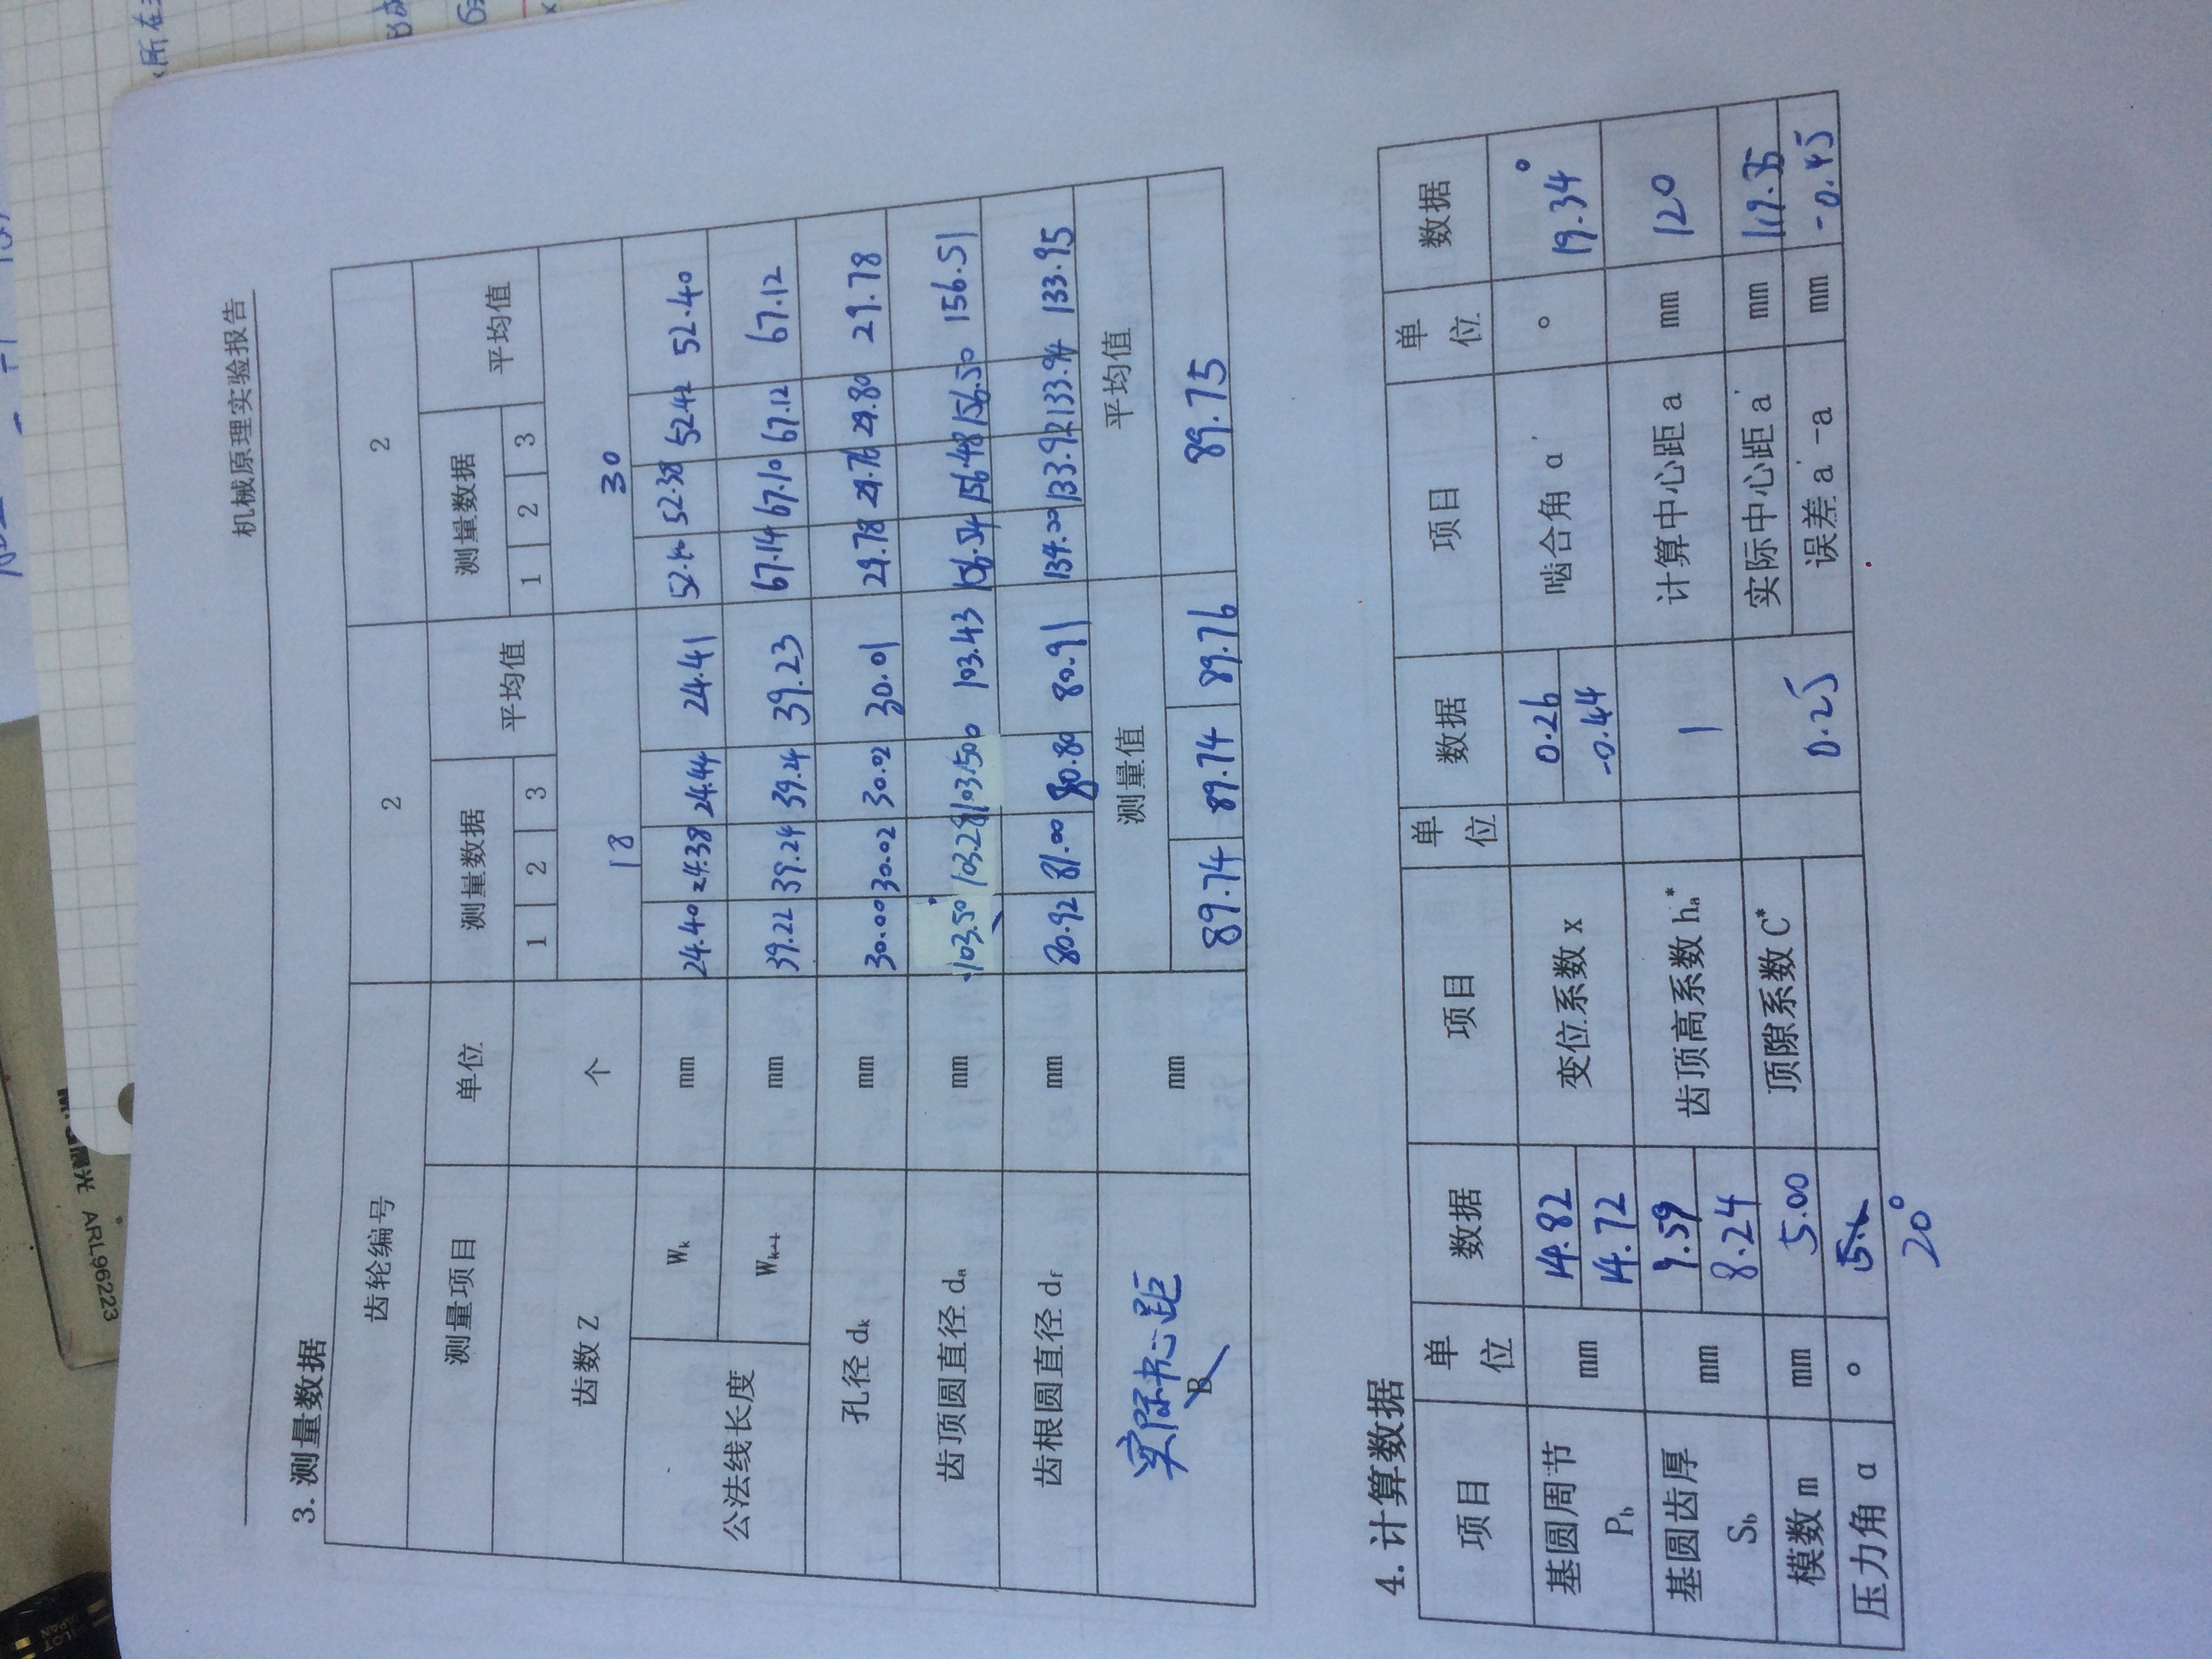 ARL96223
所在
机械原理实验报告
3. 测量数据
齿轮编号 2 2
测量项目 单位 测量数据 平均值 测量数据 平均值
1 2 3 1 2 3
齿数 Z 个 18 30
公法线长度
Wk mm 24.40 24.38 24.44 24.41 52.40 52.38 52.42 52.40
Wk+1 mm 39.22 39.24 39.24 39.23 67.14 67.10 67.12 67.12
孔径 dk mm 30.00 30.02 30.02 30.01 29.78 29.76 29.80 29.78
齿顶圆直径 da mm 103.50 103.28 103.50 103.43 156.54 156.48 156.50 156.51
齿根圆直径 df mm 80.92 81.00 80.80 80.91 134.00 133.92 133.94 133.95
实际中心距 mm 测量值 平均值
B
89.74 89.74 89.76 89.75
4. 计算数据
项目 单位 数据 项目 单位 数据 项目 单位 数据
基圆周节 Pb mm 14.82 14.72 变位系数 x 0.26 -0.44 啮合角 α' ° 19.34°
基圆齿厚 Sb mm 9.59 8.24 齿顶高系数 ha* 1 计算中心距 a mm 120
模数 m mm 5.00 顶隙系数 C* 0.25 实际中心距 a' mm
误差 a'-a mm -0.45
压力角 α °
20°